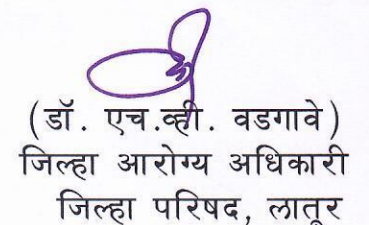 (डॉ. एच.व्ही. वडगावे)
जिल्हा आरोग्य अधिकारी
जिल्हा परिषद, लातूर